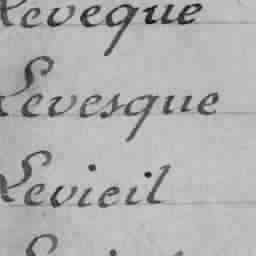 Leveque
Levesque
Levieil